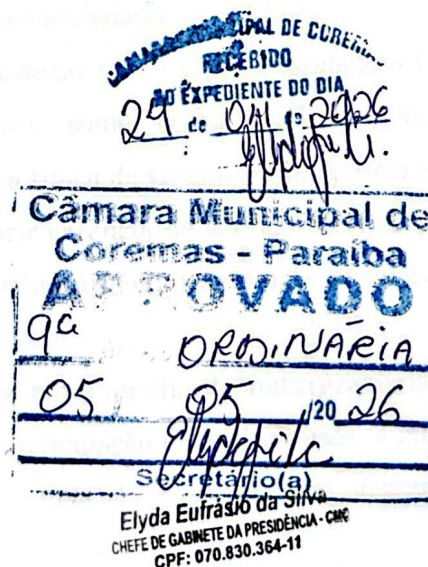 CÂMARA MUNICIPAL DE COREMAS
RECEBIDO
NO EXPEDIENTE DO DIA
29 de 04 de 2026
Câmara Municipal de
Coremas - Paraíba
APROVADO
9ª ORDINÁRIA
05 05 /20 26
Secretário(a)
Elyda Eufrásio da Silva
CHEFE DE GABINETE DA PRESIDÊNCIA - CMC
CPF: 070.830.364-11